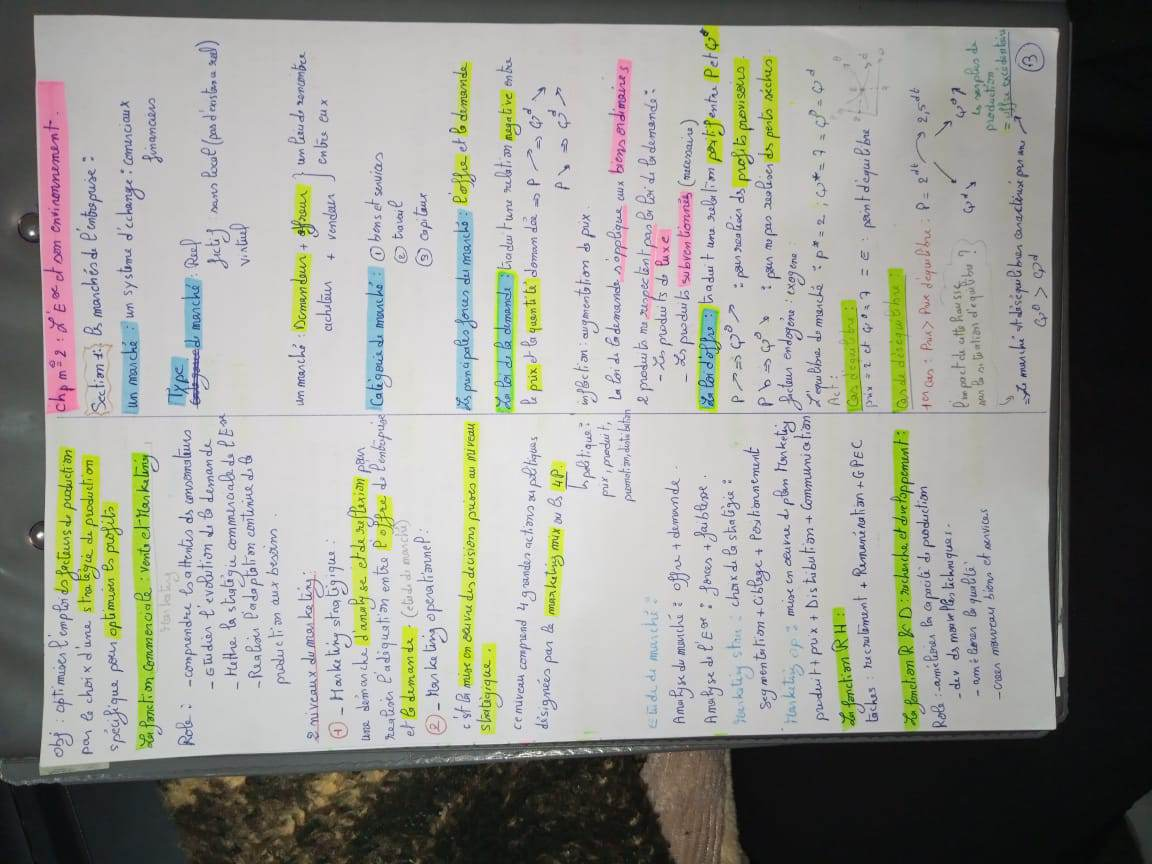 obj : optimiser l'emploi des facteurs de production
par le choix d'une stratégie de production
spécifique pour optimiser les profits
La fonction commerciale : Vente et Marketing
Marketing
Role : - comprendre les attentes des consommateurs
- Etudier l'évolution de la demande
- Mettre la stratégie commerciale de l'Ese
- Realiser l'adaptation continue de la
production aux besoins.
2 niveaux du marketing :
① - Marketing stratégique :
une démarche d'analyse et de reflexion pour
realiser l'adéquation entre l'offre de l'entreprise
et la demande . (etude de marché)
② - Marketing operationnel :
c'est la mise en oeuvre des decisions prises au niveau
stratégique.
ce niveau comprend 4 grandes actions ou politiques
désignées par le marketing mix ou les 4P.
↳ politique :
prix, produit,
promotion, distribution
Etude de marché :
Analyse du marché : offre + demande.
Analyse de l'Ese : forces + faiblesse.
Marketing stra : choix de la stratégie :
segmentation + Ciblage + Positionnement
Marketing op : mise en oeuvre du plan Marketing
produit + prix + Distribution + Communication
La fonction RH :
taches : recrutement + Remunération + GPEC
La fonction R & D : recherche et developpement :
Role : améliorer la capacité de production
- dev des nouvelles techniques.
- améliorer la qualité
- creer nouveaux biens et services
chp n° 2 : L'Ese et son environnement.
Section 1 : les marchés de l'entreprise :
un marché : un système d'échange : Comerciaux
financiers
Type de marché : Reel
fictif
virtuel
sans local (pas d'existence reel)
un marché : Demandeurs + offreurs } un lieu de rencontre
acheteurs + vendeurs } entre eux
Categorie de marché : ① biens et services
② travail
③ capitaux
Les principales forces du marché : l'offre et la demande
La loi de la demande : traduit une relation negative entre
le prix et la quantité demandée ⇒ P ↗ ⇒ Qd ↘
P ↘ ⇒ Qd ↗
inflection : augmentation de prix.
la loi de la demande s'applique aux biens ordinaires
2 produits ne respectent pas la loi de la demande :
- Les produits de luxe
- Les produits subventionnés (necessaire)
La loi d'offre : traduit une relation positif entre P et Qo
P ↗ ⇒ Qo ↗ : pour realiser des profits provisoirs.
P ↘ ⇒ Qo ↘ : pour ne pas realiser des pertes sèches
facteurs endogène : exogène
L'equilibre de marché : p* = 2 ; Q* = 7 = Qo = Qd
Act :
Cas d'equilibre :
prix = 2 et Qo = 7 = E : point d'équilibre
Cas de déséquilibre :
1er cas : Prix > Prix d'équilibre : P = 2 dt ↗ 2,5 dt
l'impact de cette hausse
sur la situation d'equilibre ?
Qd ↘ Qo ↗
↳ surplus de
production
= offre excédentaire
⇒ Le marché est déséquilibrer caractérisé par un ↗
Qo > Qd
13